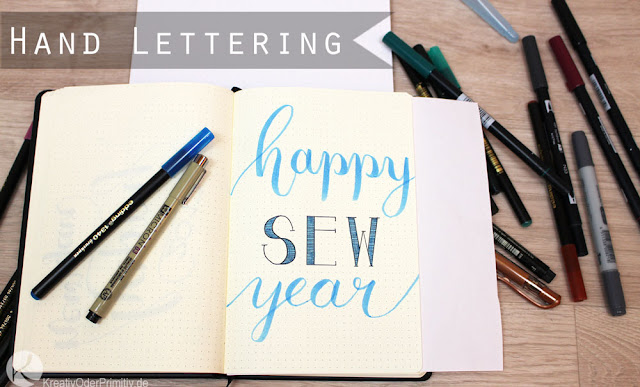 HAND LETTERING
happy
SEW
year
edding 1340
KreativOderPrimitiv.de